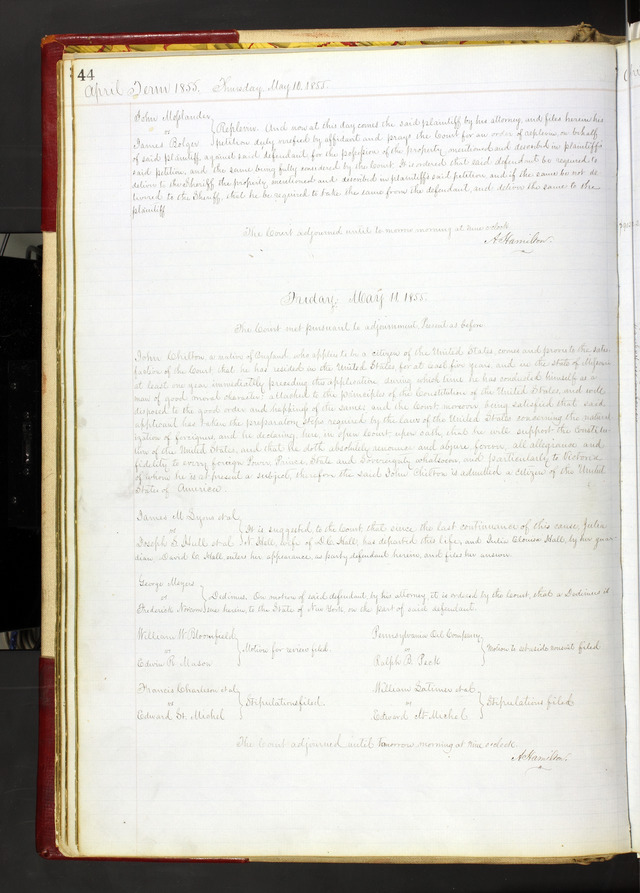 44
April Term 1855. Thursday, May 10, 1855.
John
vs
James Bolger
Replevin. And now at this day comes the said plaintiff by his attorney and files herein his
petition duly verified by affidavit and prays the Court for an order of replevin on behalf
of said plaintiff against said defendant for the possession of the property mentioned and described in plaintiffs
said petition and the same being fully considered by the Court. It is ordered that said defendant be required to
deliver to the Sheriff the property mentioned and described in plaintiffs said petition and if the same be not de-
livered to the Sheriff, that he be required to take the same from the defendant, and deliver the same to the
plaintiff
The Court adjourned until to morrow morning at nine o'clock
A Hamilton.
Friday, May 11, 1855.
The Court met pursuant to adjournment Present as before
John Chilton, a native of England, who applies to be a citizen of the United States, comes and proves to the satis-
faction of the Court, that he has resided in the United States, for at least five years, and in the state of Missouri
at least one year immediately preceding this application, during which time he has conducted himself as a
man of good moral character, attached to the principles of the Constitution of the United States, and well
disposed to the good order and happiness of the same; and the Court moreover being satisfied that said
applicant has taken the preparatory steps required by the laws of the United States concerning the natural-
ization of foreigners, and he declaring here in open Court, upon oath, that he will support the Constitu-
tion of the United States, and that he doth absolutely renounce and abjure forever, all allegiance and
fidelity to every foreign Power, Prince, State and Sovereignty whatsoever, and particularly to Victoria
of whom he is at present a subject, therefore the said John Chilton is admitted a citizen of the United
States of America.
James M Lyons et al
vs
Joseph S. Hull et al
It is suggested to the Court, that since the last continuance of this cause, Julia
N. Hall, wife of D. C. Hall, has departed this life, and Julia Eloise Hall, by her guar-
dian David C. Hall enters her appearance, as party defendant herein, and files her answer.
George Meyers
vs
Frederick
Dedimus. On motion of said defendant by his attorney it is ordered by the Court, that a Dedimus is
sue herein, to the State of New York, on the part of said defendant.
William W. Bloomfield
vs
Edwin R. Mason
Motion for review filed.
Pennsylvania Oil Company
vs
Ralph B. Peck
Motion to set aside nonsuit filed
Francis Charleson et al
vs
Edward St. Michel
Stipulations filed.
William Latimer et al
vs
Edward St. Michel
Stipulations filed
The Court adjourned until tomorrow morning at nine o'clock
A Hamilton.